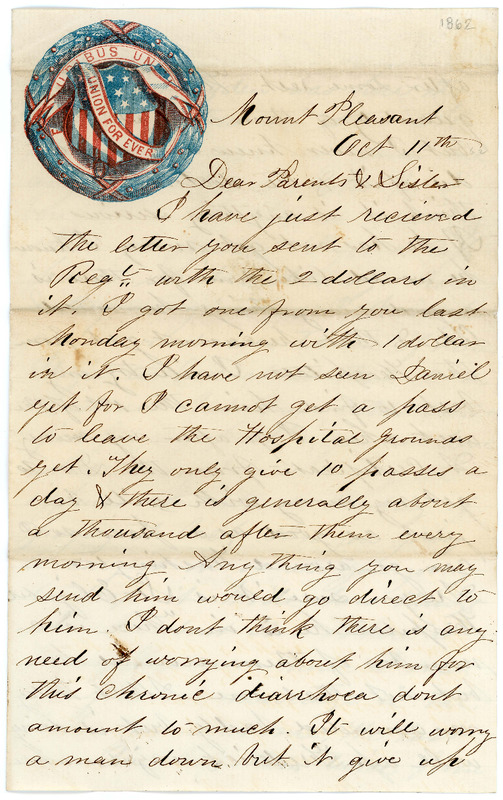 1862
E PLURIBUS UNUM
UNION FOR EVER
Mount Pleasant
Oct 11th
Dear Parents & Sister
I have just recieved
the letter you sent to the
Regt. with the 2 dollars in
it. I got one from you last
Monday morning with 1 dollar
in it. I have not seen Daniel
yet for I cannot get a pass
to leave the Hospital grounds
yet. They only give 10 passes a
day & there is generally about
a thousand after them every
morning Anything you may
send him would go direct to
him. I dont think there is any
need of worrying about him for
this chronic diarrhoea dont
amount to much. It will worry
a man down but it give up